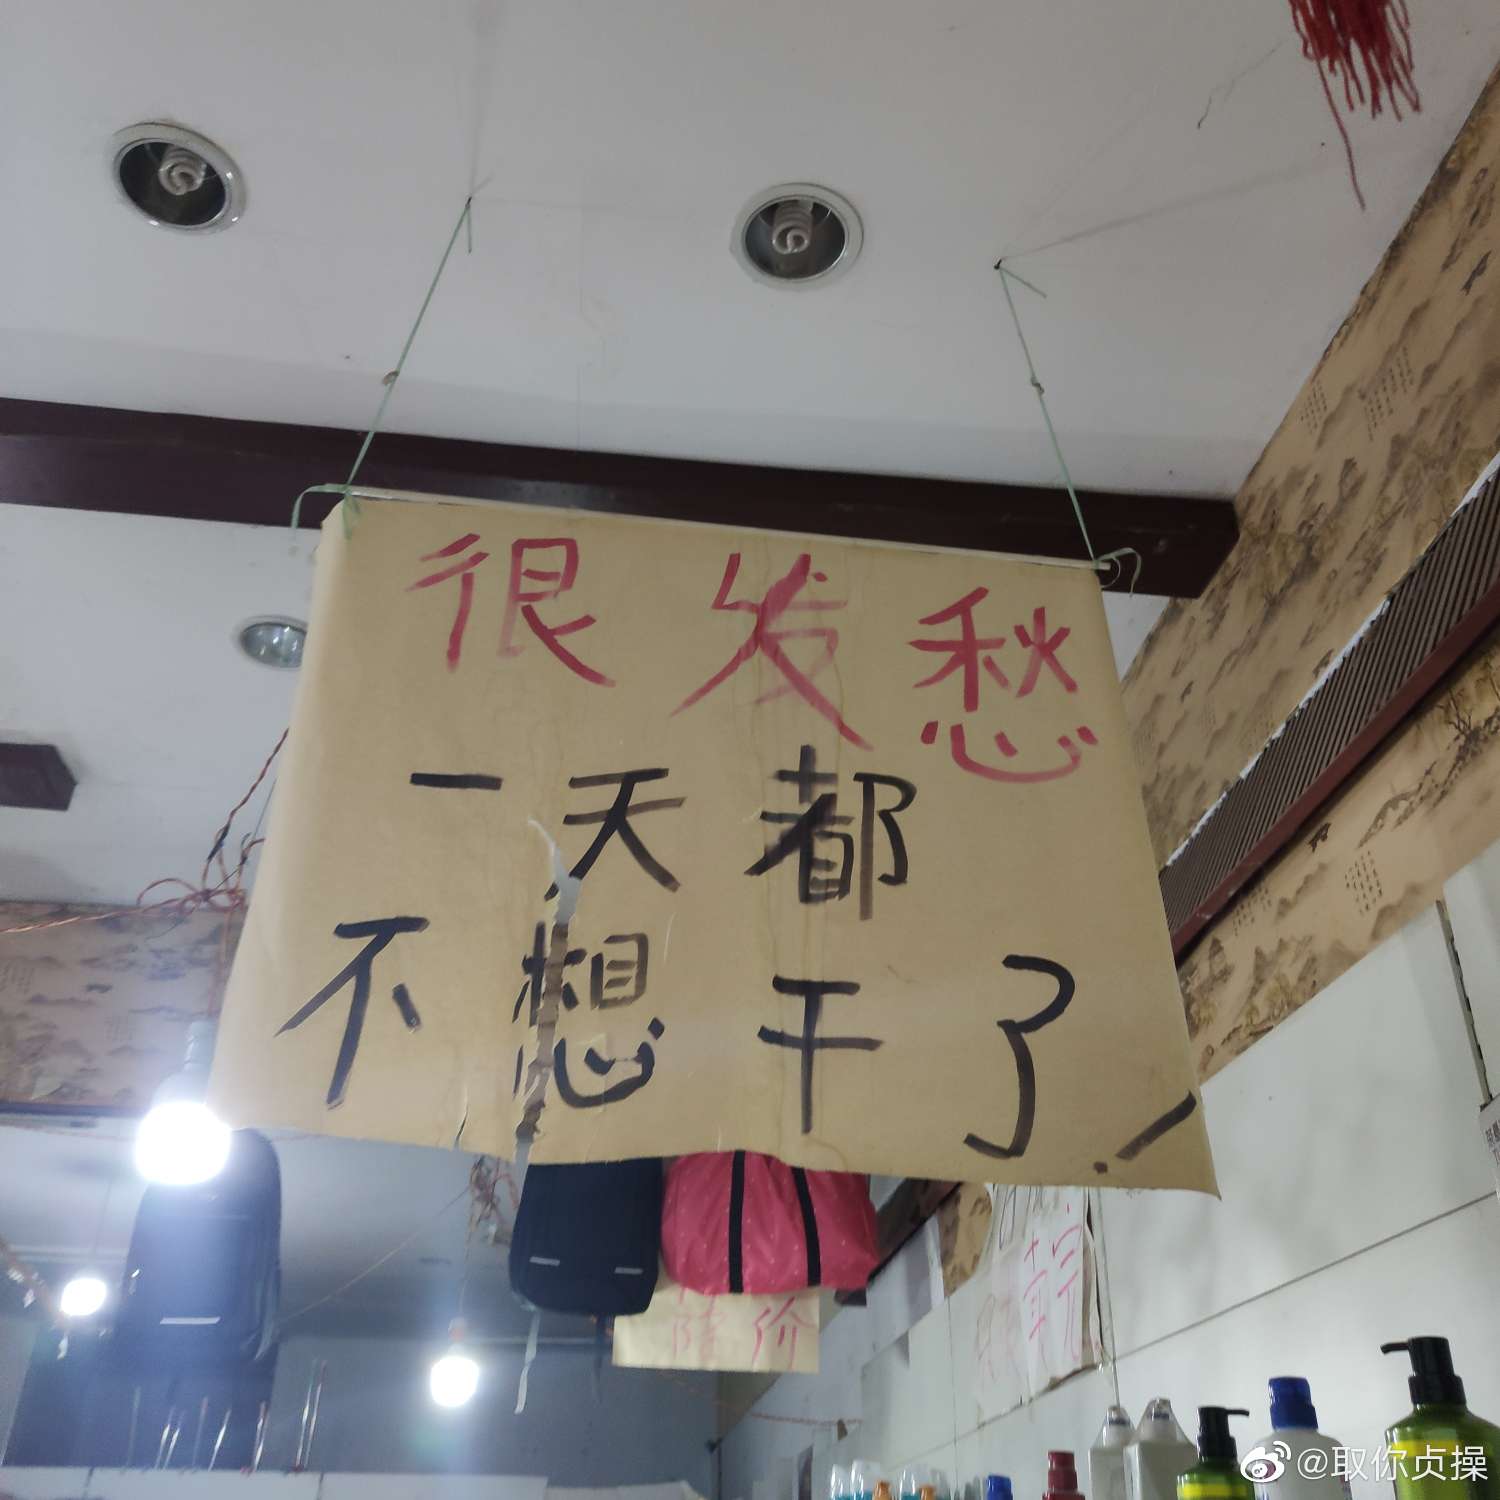 很发愁
一天都
不想干了!
降价
@取你贞操